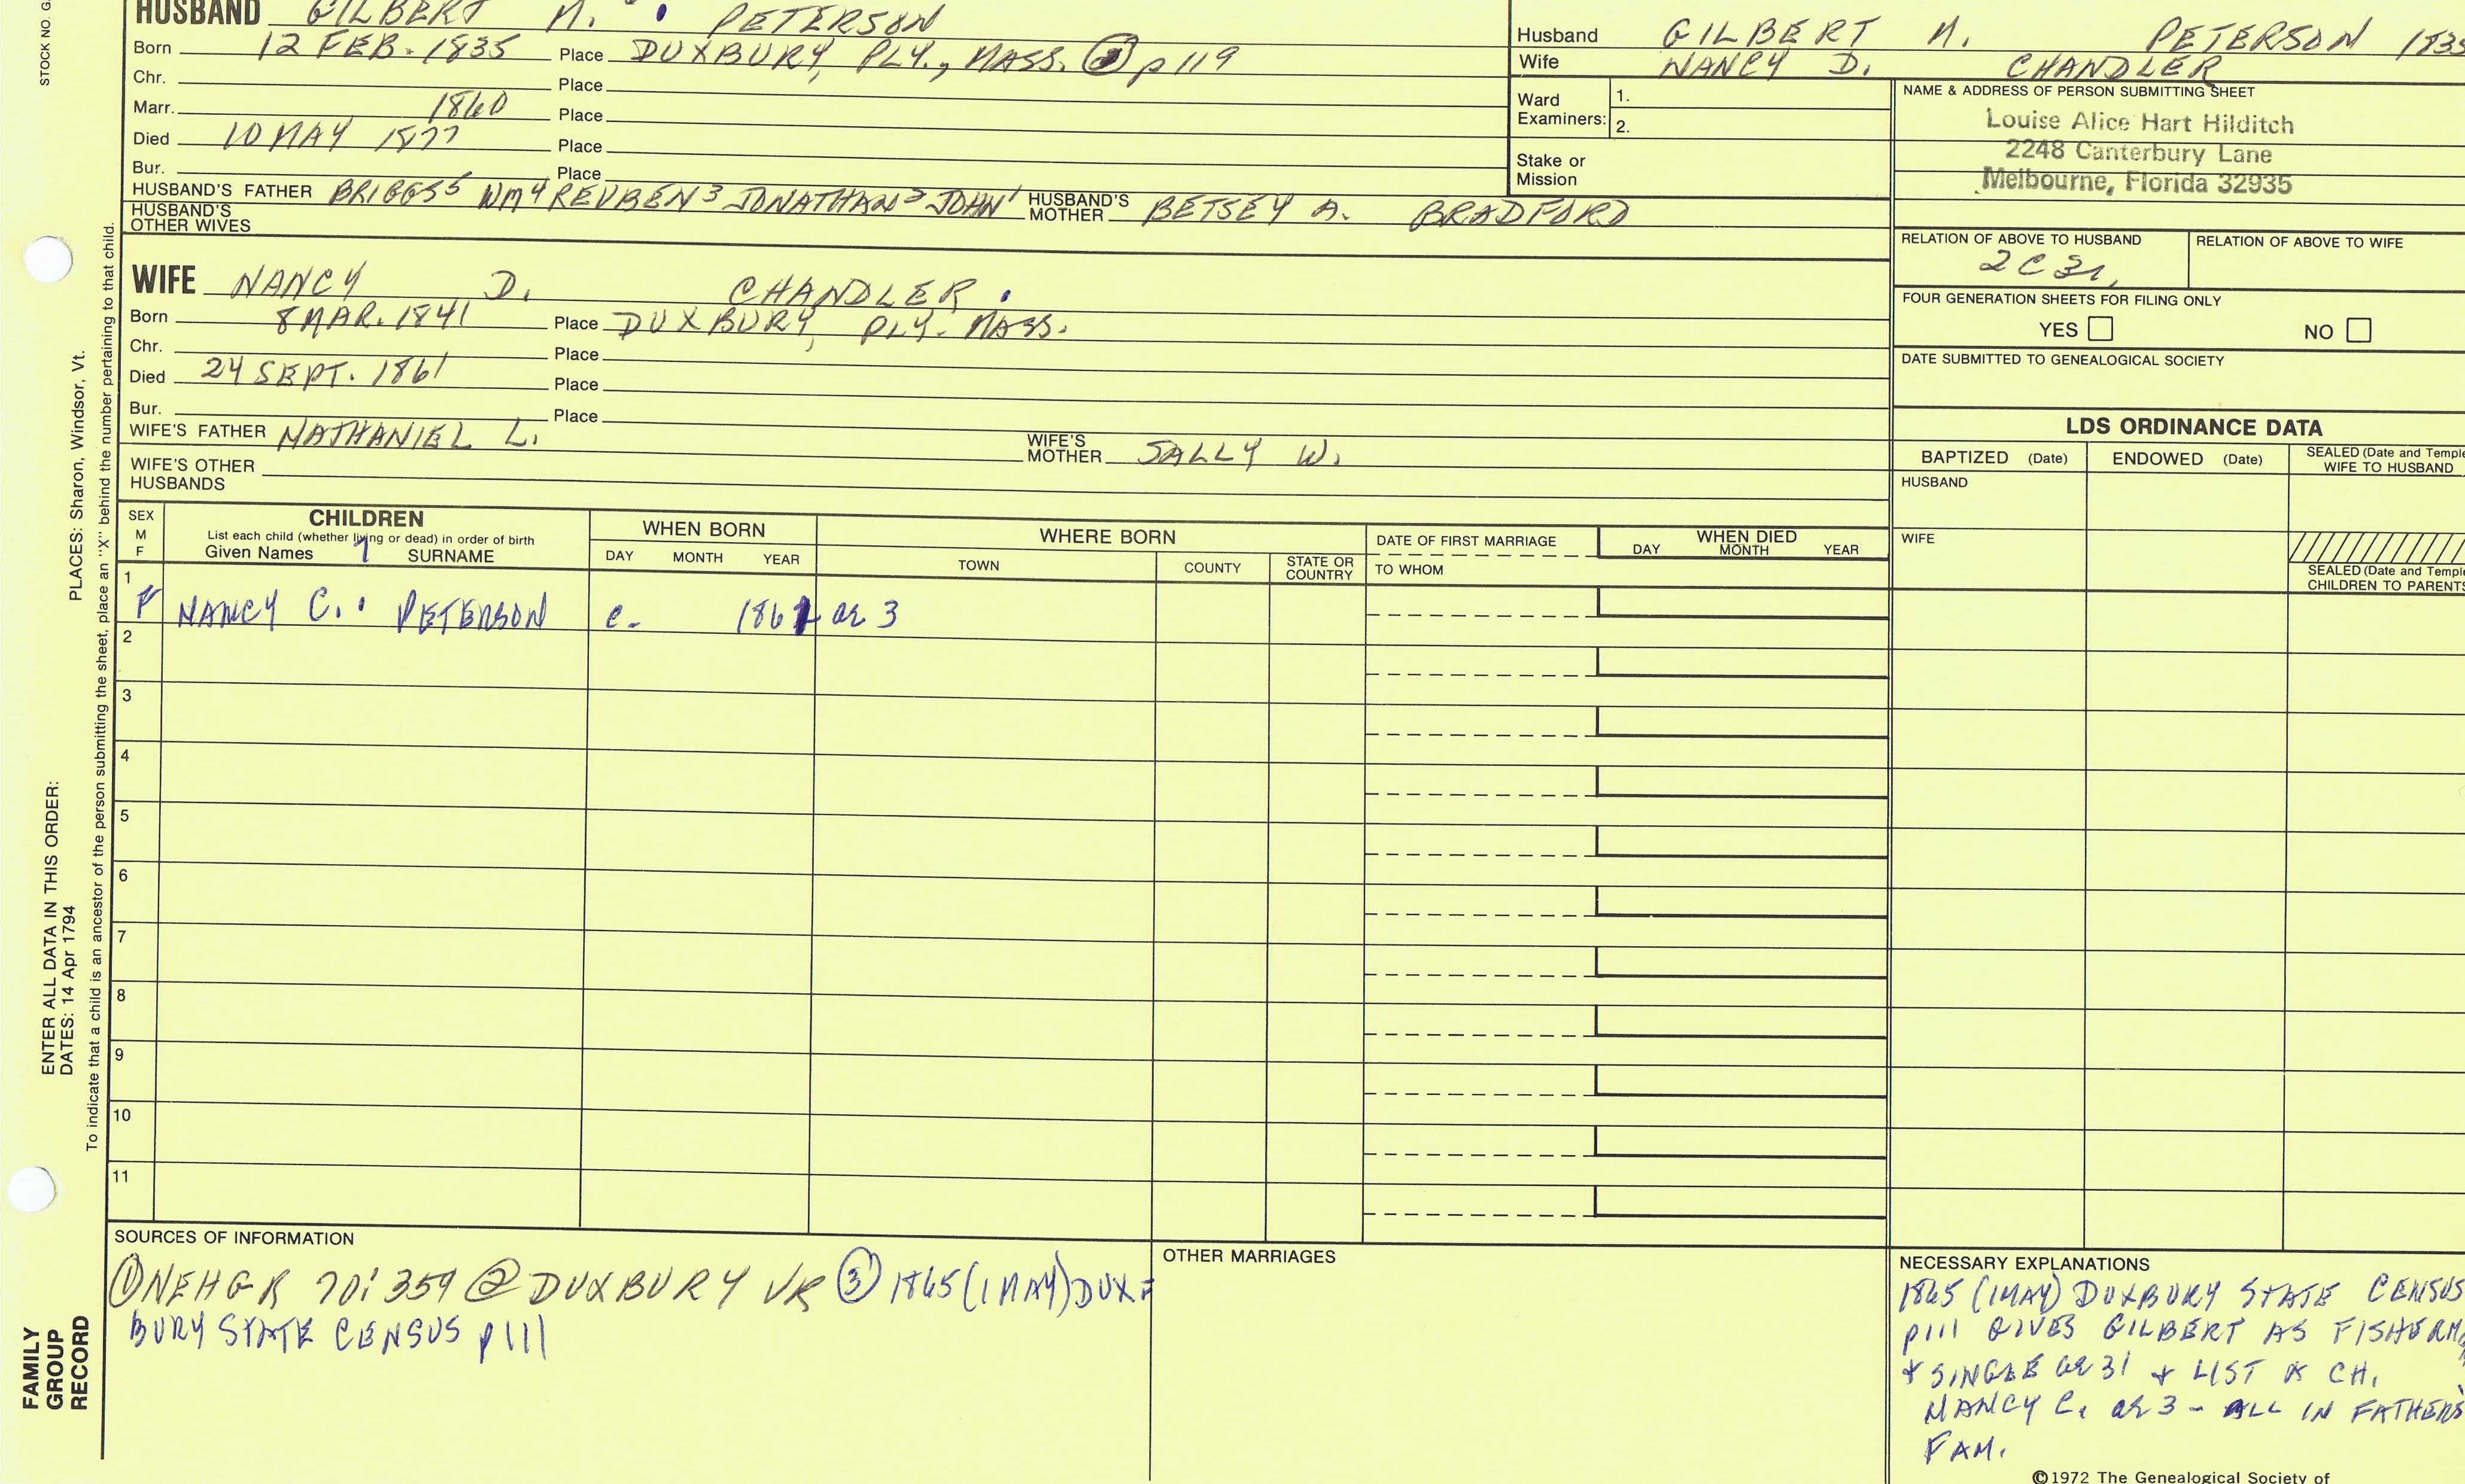 HUSBAND GILBERT M. PETERSON
Born 12 FEB. 1835 Place DUXBURY, PLY., MASS. ② p 119
Chr. Place
Marr. 1860 Place
Died 10 MAY 1877 Place
Bur. Place
HUSBAND'S FATHER BRIGGS5 WM4 REUBEN3 JONATHAN2 JOHN1 HUSBAND'S MOTHER BETSEY A. BRADFORD
HUSBAND'S OTHER WIVES
WIFE NANCY D. CHANDLER
Born 8 MAR. 1841 Place DUXBURY, PLY. MASS.
Chr. Place
Died 24 SEPT. 1861 Place
Bur. Place
WIFE'S FATHER NATHANIEL L. WIFE'S MOTHER SALLY W.
WIFE'S OTHER HUSBANDS
Husband GILBERT M. PETERSON 1835
Wife NANCY D. CHANDLER
Ward Examiners: 1.
2.
Stake or Mission
NAME & ADDRESS OF PERSON SUBMITTING SHEET
Louise Alice Hart Hilditch
2248 Canterbury Lane
Melbourne, Florida 32935
RELATION OF ABOVE TO HUSBAND RELATION OF ABOVE TO WIFE
2C
FOUR GENERATION SHEETS FOR FILING ONLY
YES NO
DATE SUBMITTED TO GENEALOGICAL SOCIETY
LDS ORDINANCE DATA
BAPTIZED (Date) ENDOWED (Date) SEALED (Date and Temple
WIFE TO HUSBAND
HUSBAND
WIFE
SEALED (Date and Temple
CHILDREN TO PARENTS
SEX
M
F
CHILDREN
List each child (whether living or dead) in order of birth
Given Names SURNAME
WHEN BORN
DAY MONTH YEAR
WHERE BORN
TOWN COUNTY STATE OR COUNTRY
DATE OF FIRST MARRIAGE
TO WHOM
WHEN DIED
DAY MONTH YEAR
1
F NANCY C. PETERSON c. ae 3
2
3
4
5
6
7
8
9
10
11
SOURCES OF INFORMATION
① NEHGR 70:359 ② DUXBURY VR ③ 1865 (1 MAY) DUX=
BURY STATE CENSUS p 111
OTHER MARRIAGES
NECESSARY EXPLANATIONS
1865 (1MAY) DUXBURY STATE CENSUS
p111 GIVES GILBERT AS
+ SINGLE ae 31 + LIST CH.
NANCY C. ae 3 - ALL IN FATHER'S
FAM.
©1972 The Genealogical Society of
STOCK NO. G
PLACES: Sharon, Windsor, Vt.
ENTER ALL DATA IN THIS ORDER:
DATES: 14 Apr 1794
To indicate that a child is an ancestor of the person submitting the sheet, place an "X" behind the number pertaining to that child.
FAMILY
GROUP
RECORD